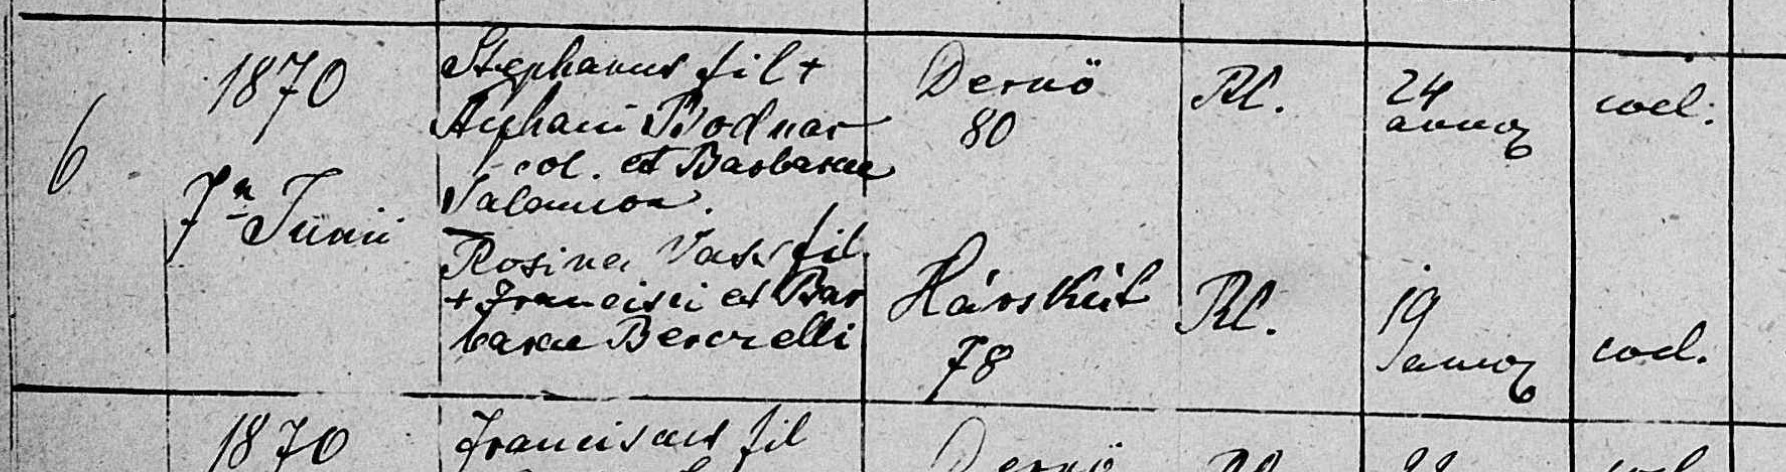 6
1870
7ª Junii
Stephanus fil +
Stephani Bodnar
col. et Barbarae
Salamon.
Dernö
80
RC.
24
annor
coel.
Rosina Vass fil
+ Francisci et Bar
barae Berczelli
Hárskút
78
RC.
19
annor
coel.
1870
Franciscus fil
Dernö